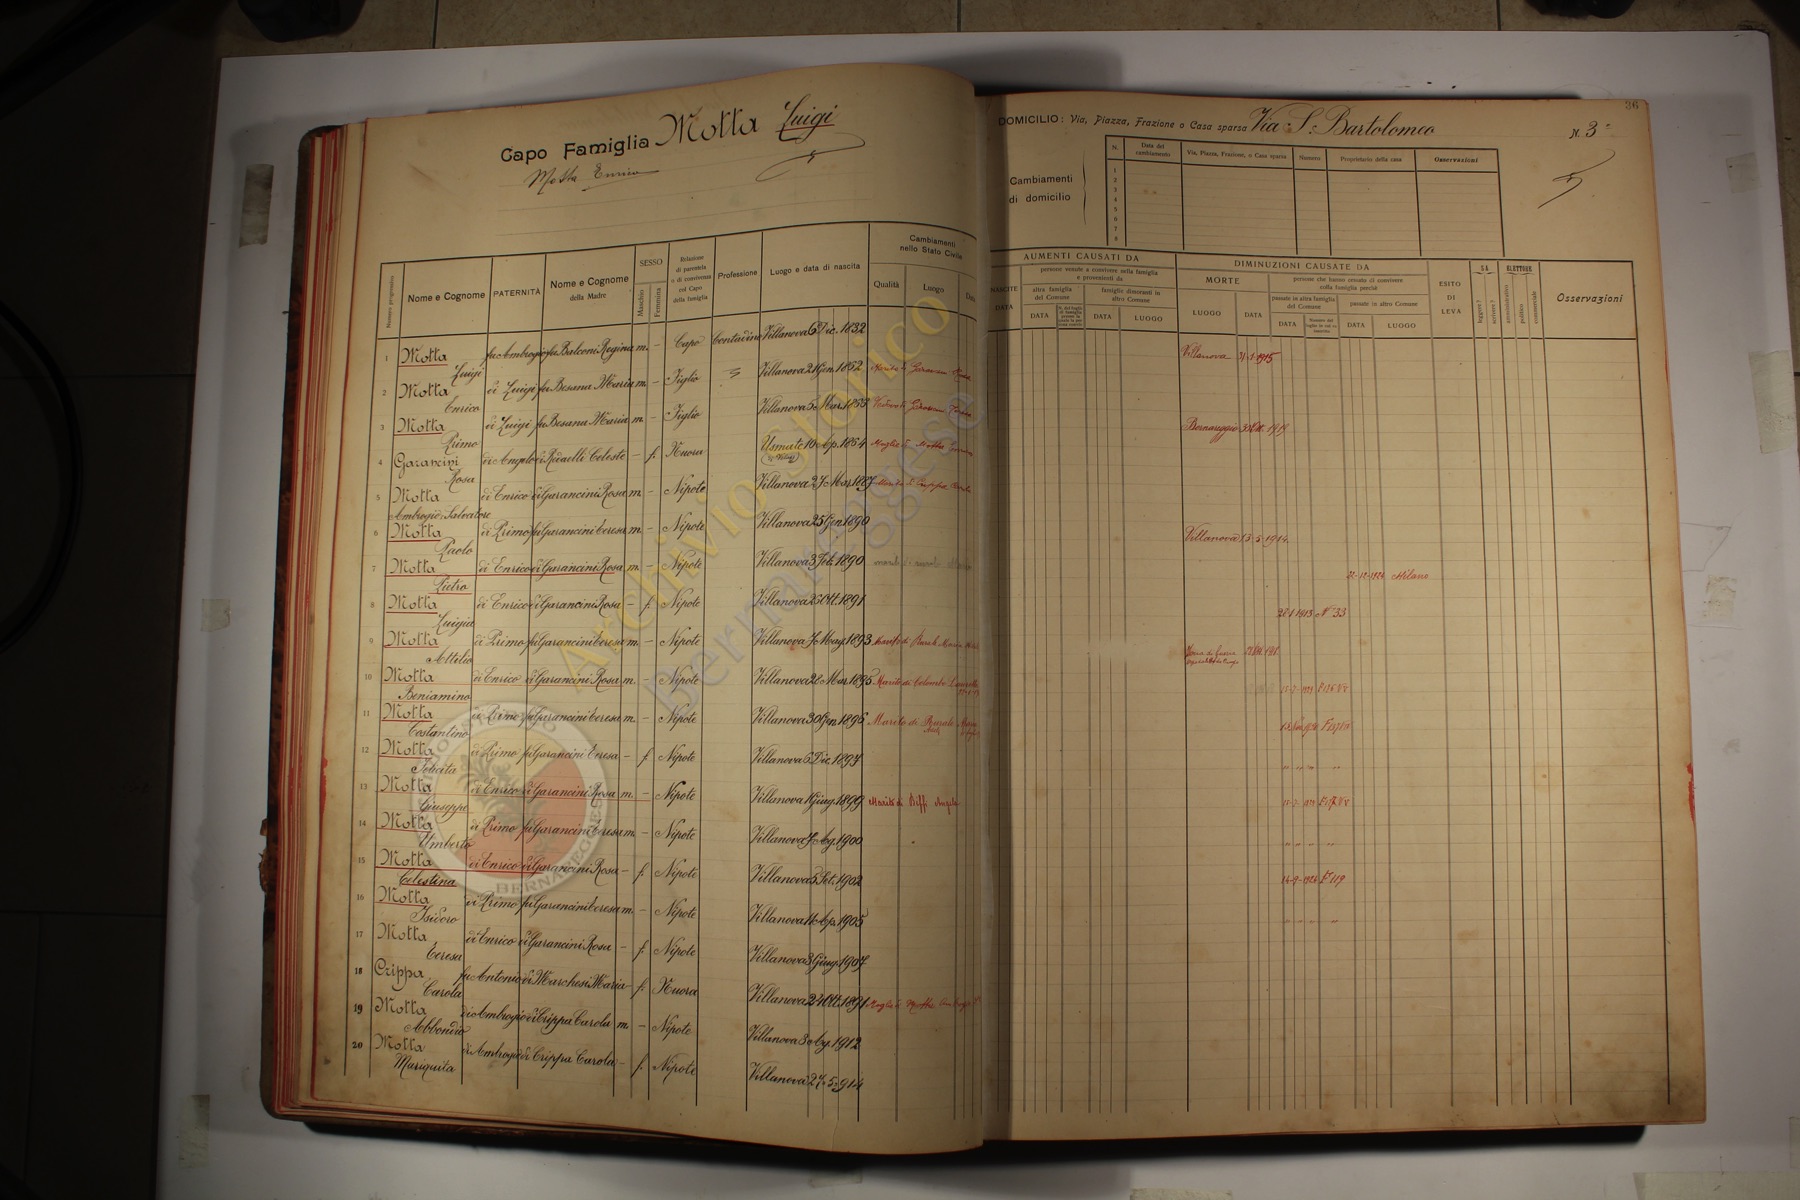 Capo Famiglia Motta Luigi
Motta Enrico
Numero progressivo
Nome e Cognome
PATERNITÀ
Nome e Cognome
della Madre
SESSO
Maschio
Femmina
Relazione
di parentela
o di convivenza
col Capo
della famiglia
Professione
Luogo e data di nascita
Cambiamenti
nello Stato Civile
Qualità
Luogo
Data
1 Motta Luigi fu Ambrogio fu Balconi Regina m. – Capo Contadino Villanova 6 Dic. 1832
2 Motta Enrico di Luigi fu Besana Maria m. – Figlio Villanova 21 Gen. 1852 Marito di Garancini Rosa
3 Motta Primo di Luigi fu Besana Maria m. – Figlio Villanova 5 Mar. 1853 Vedovo di Garancini Teresa
4 Garancini Rosa di Angelo di Ravelli Celeste – f. Nuora Usmate 10 Ap. 1854 Moglie di Motta Enrico
5 Motta Ambrogio Salvatore di Enrico di Garancini Rosa m. – Nipote Villanova 27 Mar. 1887 Marito di Crippa Carola
6 Motta Paolo di Primo fu Garancini Teresa m. – Nipote Villanova 25 Gen 1890
7 Motta Pietro di Enrico di Garancini Rosa m. – Nipote Villanova 3 Feb. 1890
8 Motta Luigia di Enrico di Garancini Rosa – f. Nipote Villanova 25 Ott. 1891
9 Motta Attilio di Primo fu Garancini Teresa m. – Nipote Villanova 7 Mag. 1893 Marito di
10 Motta Beniamino di Enrico di Garancini Rosa m. – Nipote Villanova 26 Mar. 1895 Marito di Colombo
11 Motta Costantino di Primo fu Garancini Teresa m. – Nipote Villanova 30 Gen. 1896 Marito di
12 Motta Felicita di Primo fu Garancini Teresa – f. Nipote Villanova 5 Dic. 1897
13 Motta Giuseppe di Enrico di Garancini Rosa m. – Nipote Villanova 1 Giug. 1899 Marito di Biffi Angela
14 Motta Umberto di Primo fu Garancini Teresa m. – Nipote Villanova 7 Ag. 1900
15 Motta Celestina di Enrico di Garancini Rosa – f. Nipote Villanova 3 Set. 1902
16 Motta Isidoro di Primo fu Garancini Teresa m. – Nipote Villanova 11 Ap. 1905
17 Motta Teresa di Enrico di Garancini Rosa – f. Nipote Villanova 3 Giug. 1907
18 Crippa Carola fu Antonio di Marchesi Maria – f. Nuora Villanova 24 Ott. 1891 Moglie di Motta
19 Motta Abbondio di Ambrogio di Crippa Carola m. – Nipote Villanova 3 Ag. 1912
20 Motta Mariquita di Ambrogio di Crippa Carola – f. Nipote Villanova 27.5.914
36
DOMICILIO: Via, Piazza, Frazione o Casa sparsa Via S. Bartolomeo N. 3
Cambiamenti
di domicilio
N.
Data del
cambiamento
Via, Piazza, Frazione, o Casa sparsa
Numero
Proprietario della casa
Osservazioni
1
2
3
4
5
6
7
8
AUMENTI CAUSATI DA
NASCITE
DATA
persone venute a convivere nella famiglia
e provenienti da
altra famiglia
del Comune
DATA
famiglie dimoranti in
altro Comune
DATA
LUOGO
DIMINUZIONI CAUSATE DA
MORTE
LUOGO
DATA
persone che hanno cessato di convivere
colla famiglia perchè
passate in altra famiglia
del Comune
DATA
passate in altro Comune
DATA
LUOGO
ESITO
DI
LEVA
SA
leggere?
scrivere?
ELETTORE
amministrativo
politico
commerciale
Osservazioni
Villanova 31-1-1915
Bernareggio 30 Ott. 1919
Villanova 13-5-1914
Milano
28 1 1913 N° 33
Archivio storico
Bernareggese
BERNAREGGESE